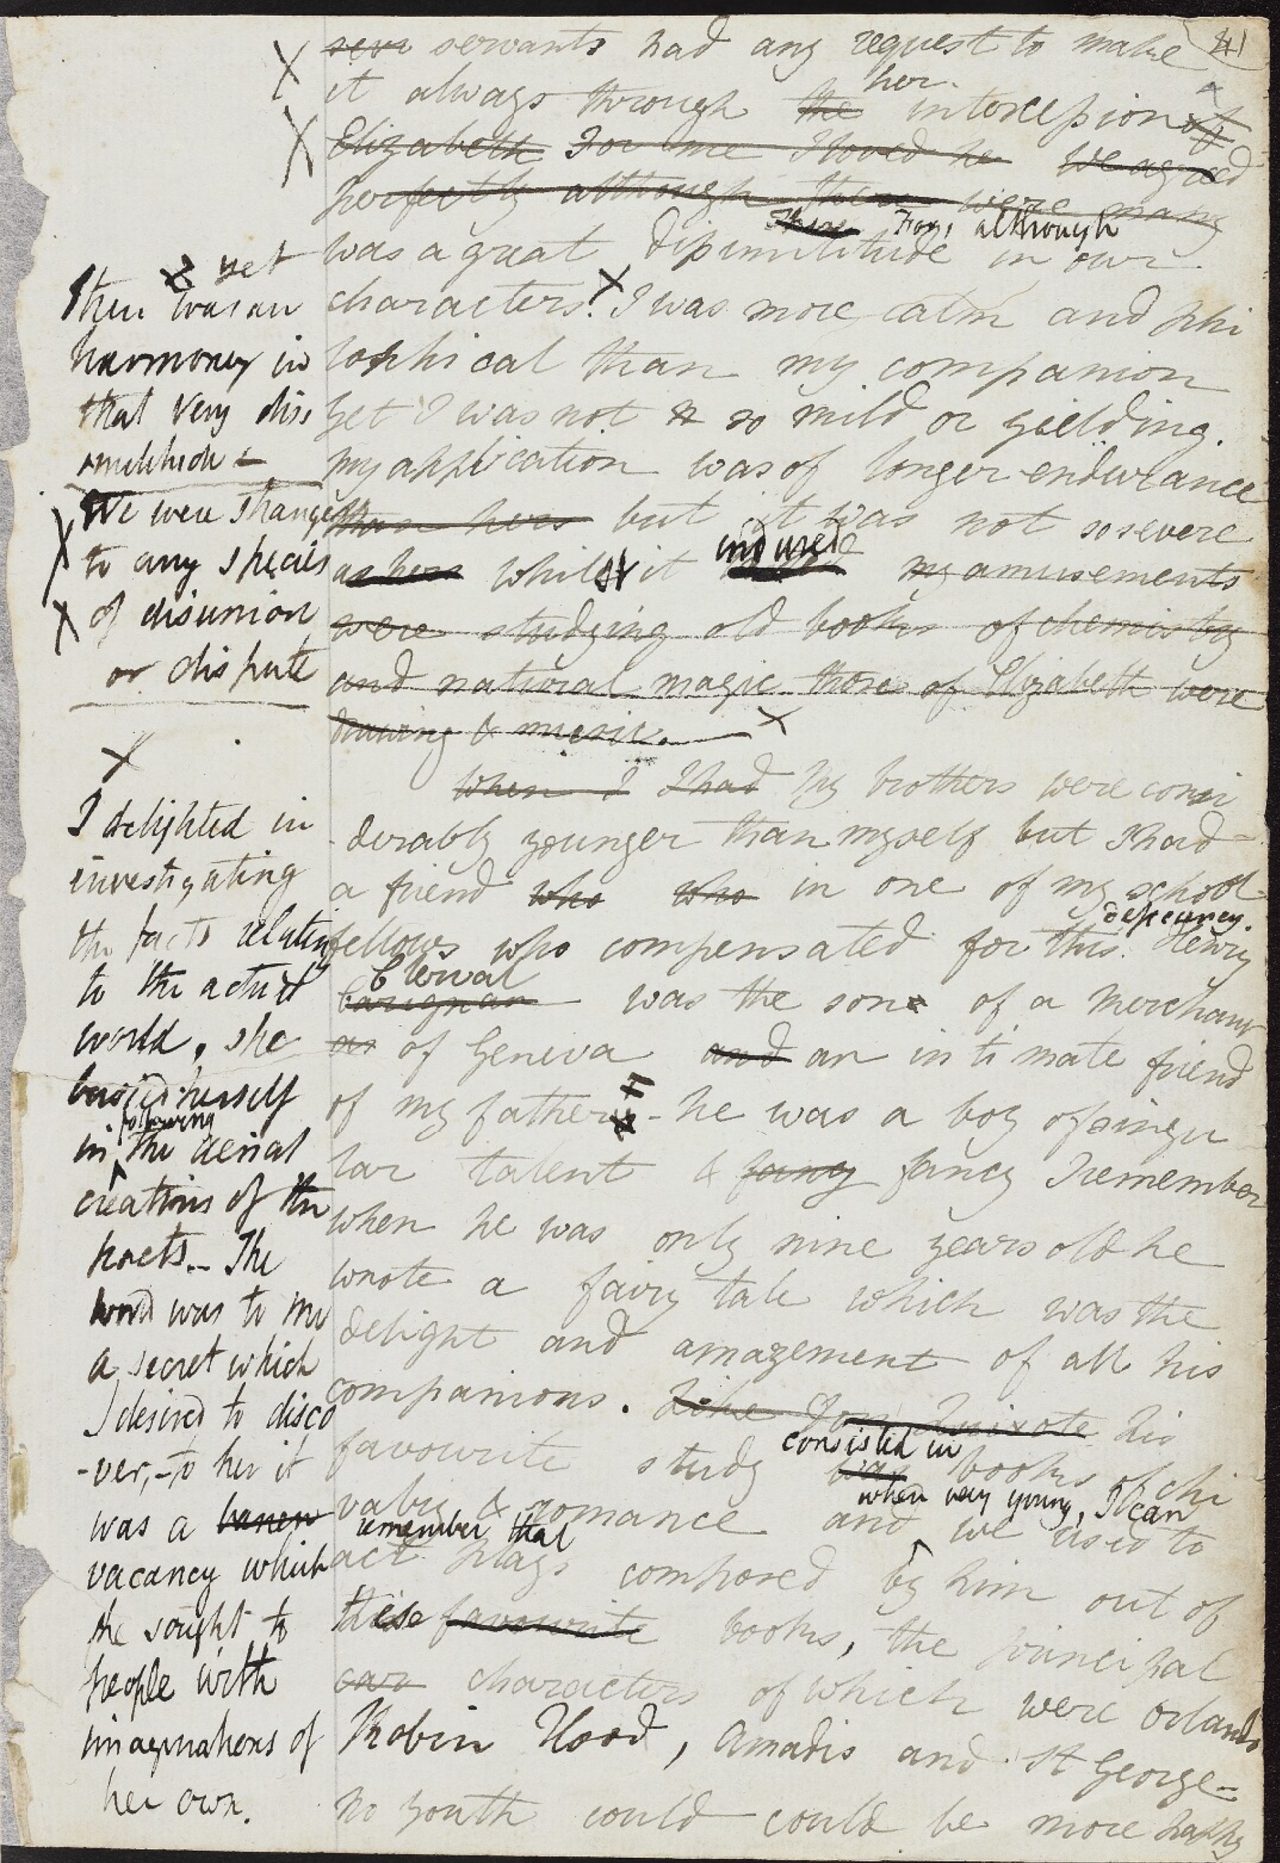 41
servants had any request to make
it always through the her intercession of
Elizabeth For me I loved he We agreed
perfectly although there were many
There For, although
was a great dissimilitude in our
characters. I was more calm and phi
losphical than my companion
yet I was not so mild or yielding.
my application was of longer endurance
than hers but it was not so severe
as hers whilst it endured my amusements
were studying old books of chemistry
and natural magic those of Elizabeth were
drawing & music.
When I I had My brothers were consi
derably younger than myself but I had
a friend who who in one of my school
deficiency.
fellows who compensated for this. Henry
Clerval
Carignan was the son of a merchant
as of Geneva and an intimate friend
of my father - he was a boy of singu
lar talent & fancy fancy I remember
when he was only nine years old he
wrote a fairy tale which was the
delight and amazement of all his
companions. Like Don Quixote his
consisted in
favourite study was books of chi
when very young, I can
valry & romance and we used to
remember that
act plays composed by him out of
these favourite books, the principal
car characters of which were Orlando
Robin Hood, Amadis and St George-
No youth could could be more happy
& yet
there was an
harmony in
that very diss
imilitude -
We were strangers
to any species
of disunion
or dispute
I delighted in
investigating
the facts relating
to the actual
world, she
busied herself
following
in the aerial
creations of the
poets_ The
world was to me
a secret which
I desired to disco
-ver,-to her it
was a barren
vacancy which
she sought to
people with
imaginations of
her own.